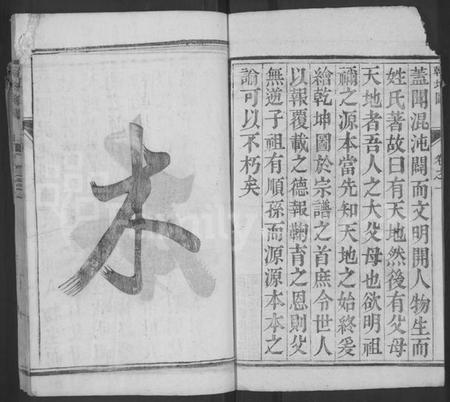 乾坤圖
卷之一
蓋聞混沌闢而文明開人物生而
姓氏著故曰有天地然後有父母
天地者吾人之大父母也欲明祖
禰之源本當先知天地之始終爰
繪乾坤圖於宗譜之首庶令世人
以報覆載之德報鞠育之恩則父
無逆子祖有順孫而源源本本之
諭可以不朽矣
本